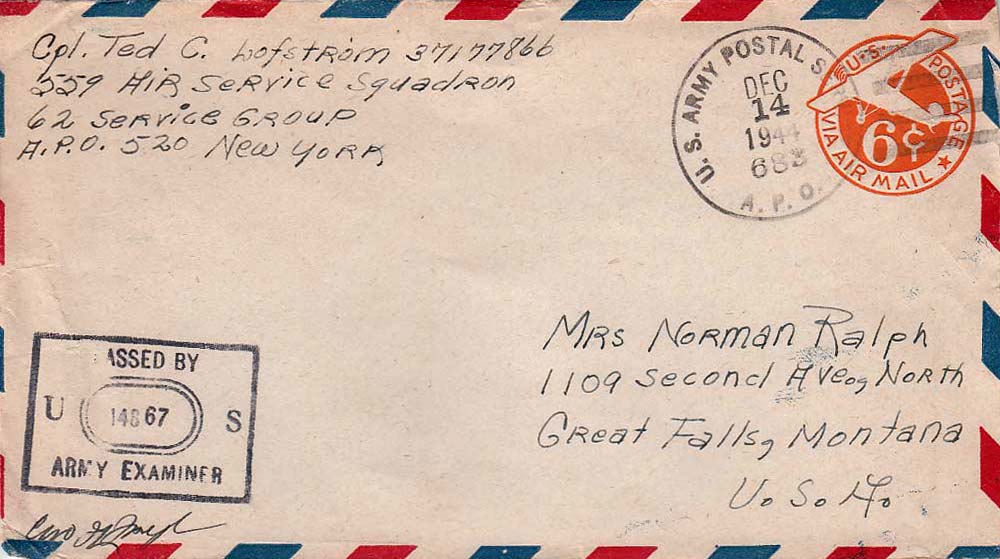 Cpl. Ted C. Lofstrom 37177866
559 AIR Service Squadron
62 Service GROUP
A.P.O. 520 New York
U. S. ARMY POSTAL S
DEC
14
1944
A. P. O.
U.S. POSTAGE
6¢
VIA AIR MAIL
Mrs Norman Ralph
1109 Second Ave., North
Great Falls, Montana
U. S. A.
ASSED BY
U 14867 S
ARMY EXAMINER